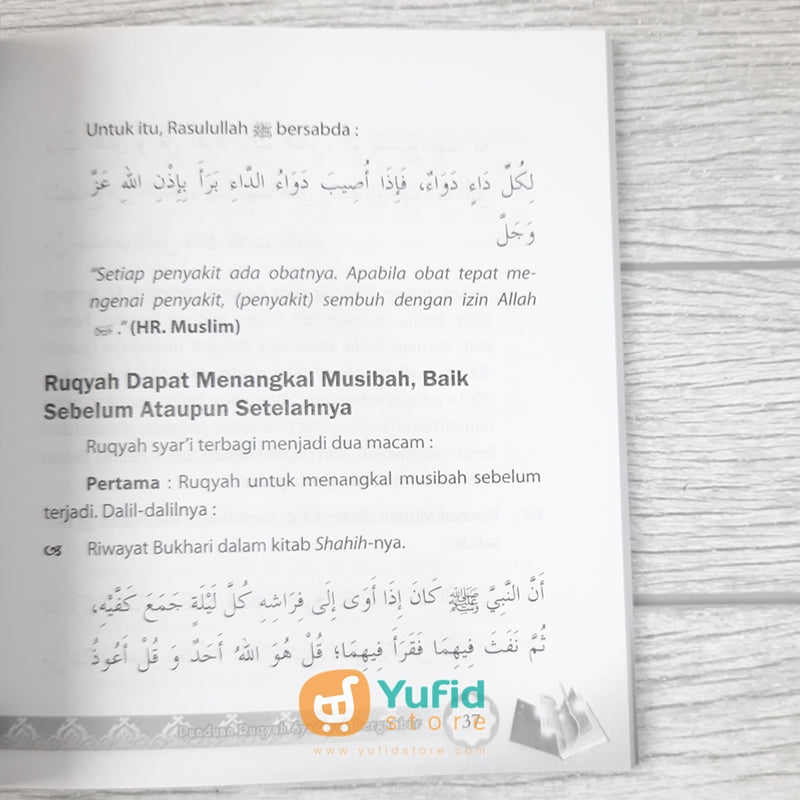 Untuk itu, Rasulullah ﷺ bersabda :
لِكُلِّ دَاءٍ دَوَاءٌ، فَإِذَا أُصِيبَ دَوَاءُ الدَّاءِ بَرَأَ بِإِذْنِ اللهِ عَزَّ
وَجَلَّ
"Setiap penyakit ada obatnya. Apabila obat tepat me-
ngenai penyakit, (penyakit) sembuh dengan izin Allah
." (HR. Muslim)
Ruqyah Dapat Menangkal Musibah, Baik
Sebelum Ataupun Setelahnya
Ruqyah syar'i terbagi menjadi dua macam :
Pertama : Ruqyah untuk menangkal musibah sebelum
terjadi. Dalil-dalilnya :
Riwayat Bukhari dalam kitab Shahih-nya.
أَنَّ النَّبِيَّ ﷺ كَانَ إِذَا أَوَى إِلَى فِرَاشِهِ كُلَّ لَيْلَةٍ جَمَعَ كَفَّيْهِ،
ثُمَّ نَفَثَ فِيهِمَا فَقَرَأَ فِيهِمَا؛ قُلْ هُوَ اللهُ أَحَدٌ وَ قُلْ أَعُوذُ
Panduan Ruqyah
37
Yufid
store
www.yufidstore.com